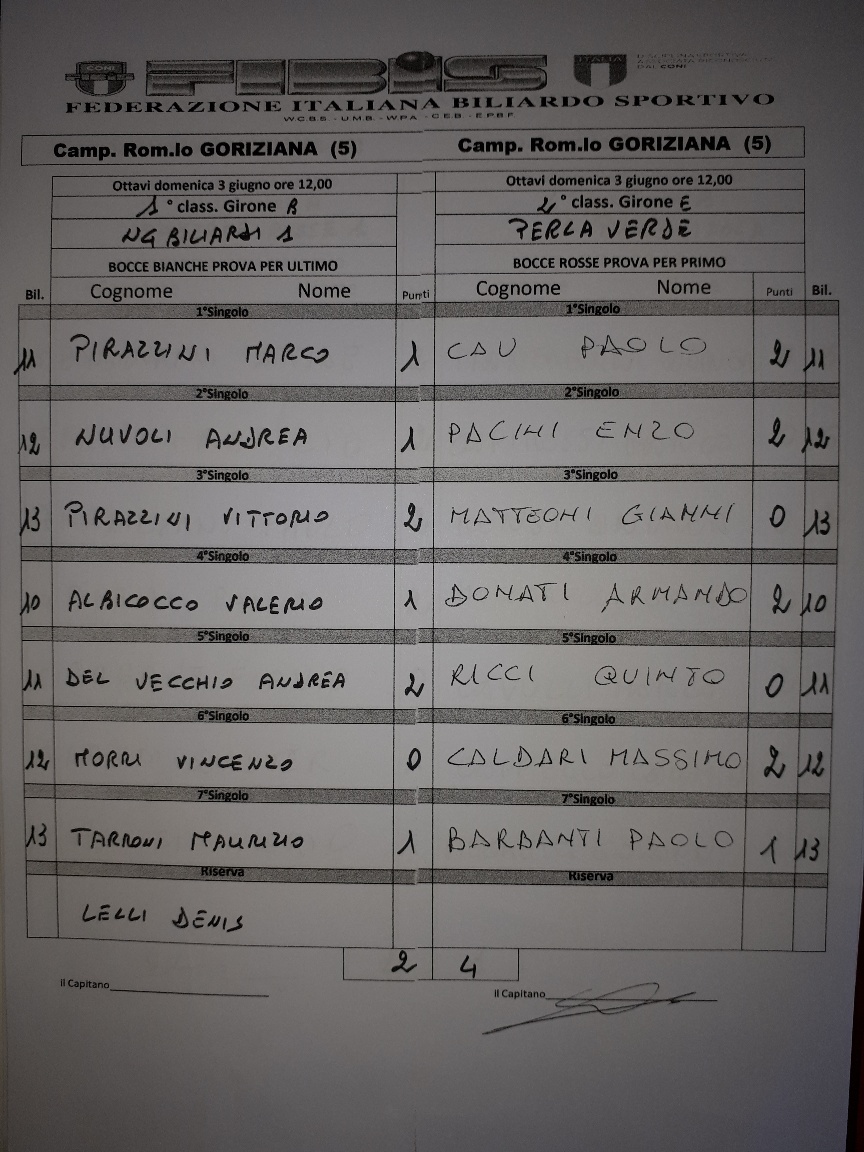 CONI FIBiS ITALIA
FEDERAZIONE ITALIANA BILIARDO SPORTIVO
W.C.B.S. - U.M.B. - W.P.A. - C.E.B. - E.P.B.F.
Camp. Rom.lo GORIZIANA (5) Camp. Rom.lo GORIZIANA (5)
Ottavi domenica 3 giugno ore 12,00 Ottavi domenica 3 giugno ore 12,00
1° class. Girone B 2° class. Girone E
NG BILIARDI 1 PERLA VERDE
BOCCE BIANCHE PROVA PER ULTIMO BOCCE ROSSE PROVA PER PRIMO
Bil. Cognome Nome Punti Cognome Nome Punti Bil.
1°Singolo 1°Singolo
11 PIRAZZINI MARCO 1 CAU PAOLO 2 11
2°Singolo 2°Singolo
12 NUVOLI ANDREA 1 PACINI ENZO 2 12
3°Singolo 3°Singolo
13 PIRAZZINI VITTORIO 2 MATTEONI GIANNI 0 13
4°Singolo 4°Singolo
10 ALBICOCCO VALERIO 1 DONATI ARMANDO 2 10
5°Singolo 5°Singolo
11 DEL VECCHIO ANDREA 2 RICCI QUINTO 0 11
6°Singolo 6°Singolo
12 MORRI VINCENZO 0 CALDARI MASSIMO 2 12
7°Singolo 7°Singolo
13 TARRONI MAURIZIO 1 BARBANTI PAOLO 1 13
Riserva Riserva
LELLI DENIS
2 4
Il Capitano Il Capitano